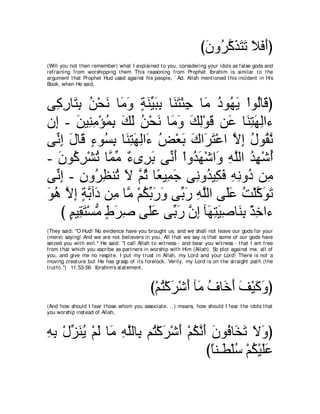 (أَفَلاَ تَتَذَكَّرُونَ)
(Will you not then remember) what I explained to you, considering your idols as false gods and refraining from worshipping them This reasoning from Prophet Ibrahim is similar to the argument that Prophet Hud used against his people, `Ad. Allah mentioned this incident in His Book, when He said,
(قَالُواْ يهُودُ مَا جِئْتَنَا بِبَيِّنَةٍ وَمَا نَحْنُ بِتَارِكِى
ءالِهَتِنَا عَن قَوْلِكَ وَمَا نَحْنُ لَكَ بِمُؤْمِنِينَ - إِن
نَّقُولُ إِلاَّ اعْتَرَاكَ بَعْضُ ءَالِهَتِنَا بِسُوءٍ قَالَ إِنِّى
أُشْهِدُ اللَّهِ وَاشْهَدُواْ أَنِّى بَرِىءٌ مِّمَّا تُشْرِكُونَ -
مِن دُونِهِ فَكِيدُونِى جَمِيعًا ثُمَّ لاَ تُنظِرُونِ - إِنِّى
تَوَكَّلْتُ عَلَى اللَّهِ رَبِّى وَرَبِّكُمْ مَّا مِن دَآبَّةٍ إِلاَّ هُوَ
ءاخِذٌ بِنَاصِيَتِهَآ إِنَّ رَبِّى عَلَى صِرَطٍ مُّسْتَقِيمٍ )
(They said: "O Hud! No evidence have you brought us, and we shall not leave our gods for your (mere) saying! And we are not believers in you. All that we say is that some of our gods have seized you with evil." He said: "I call Allah to witness - and bear you witness - that I am free from that which you ascribe as partners in worship with Him (Allah). So plot against me, all of you, and give me no respite. I put my trust in Allah, my Lord and your Lord! There is not a moving creature but He has grasp of its forelock. Verily, my Lord is on the straight path (the truth).") 11:53-56 Ibrahim's statement,
(وَكَيْفَ أَخَافُ مَآ أَشْرَكْتُمْ)
(And how should I fear those whom you associate...) means, how should I fear the idols that you worship instead of Allah,
(وَلاَ تَخَافُونَ أَنَّكُمْ أَشْرَكْتُم بِاللَّهِ مَا لَمْ يُنَزِّلْ بِهِ
عَلَيْكُمْ سُلْطَـناً)